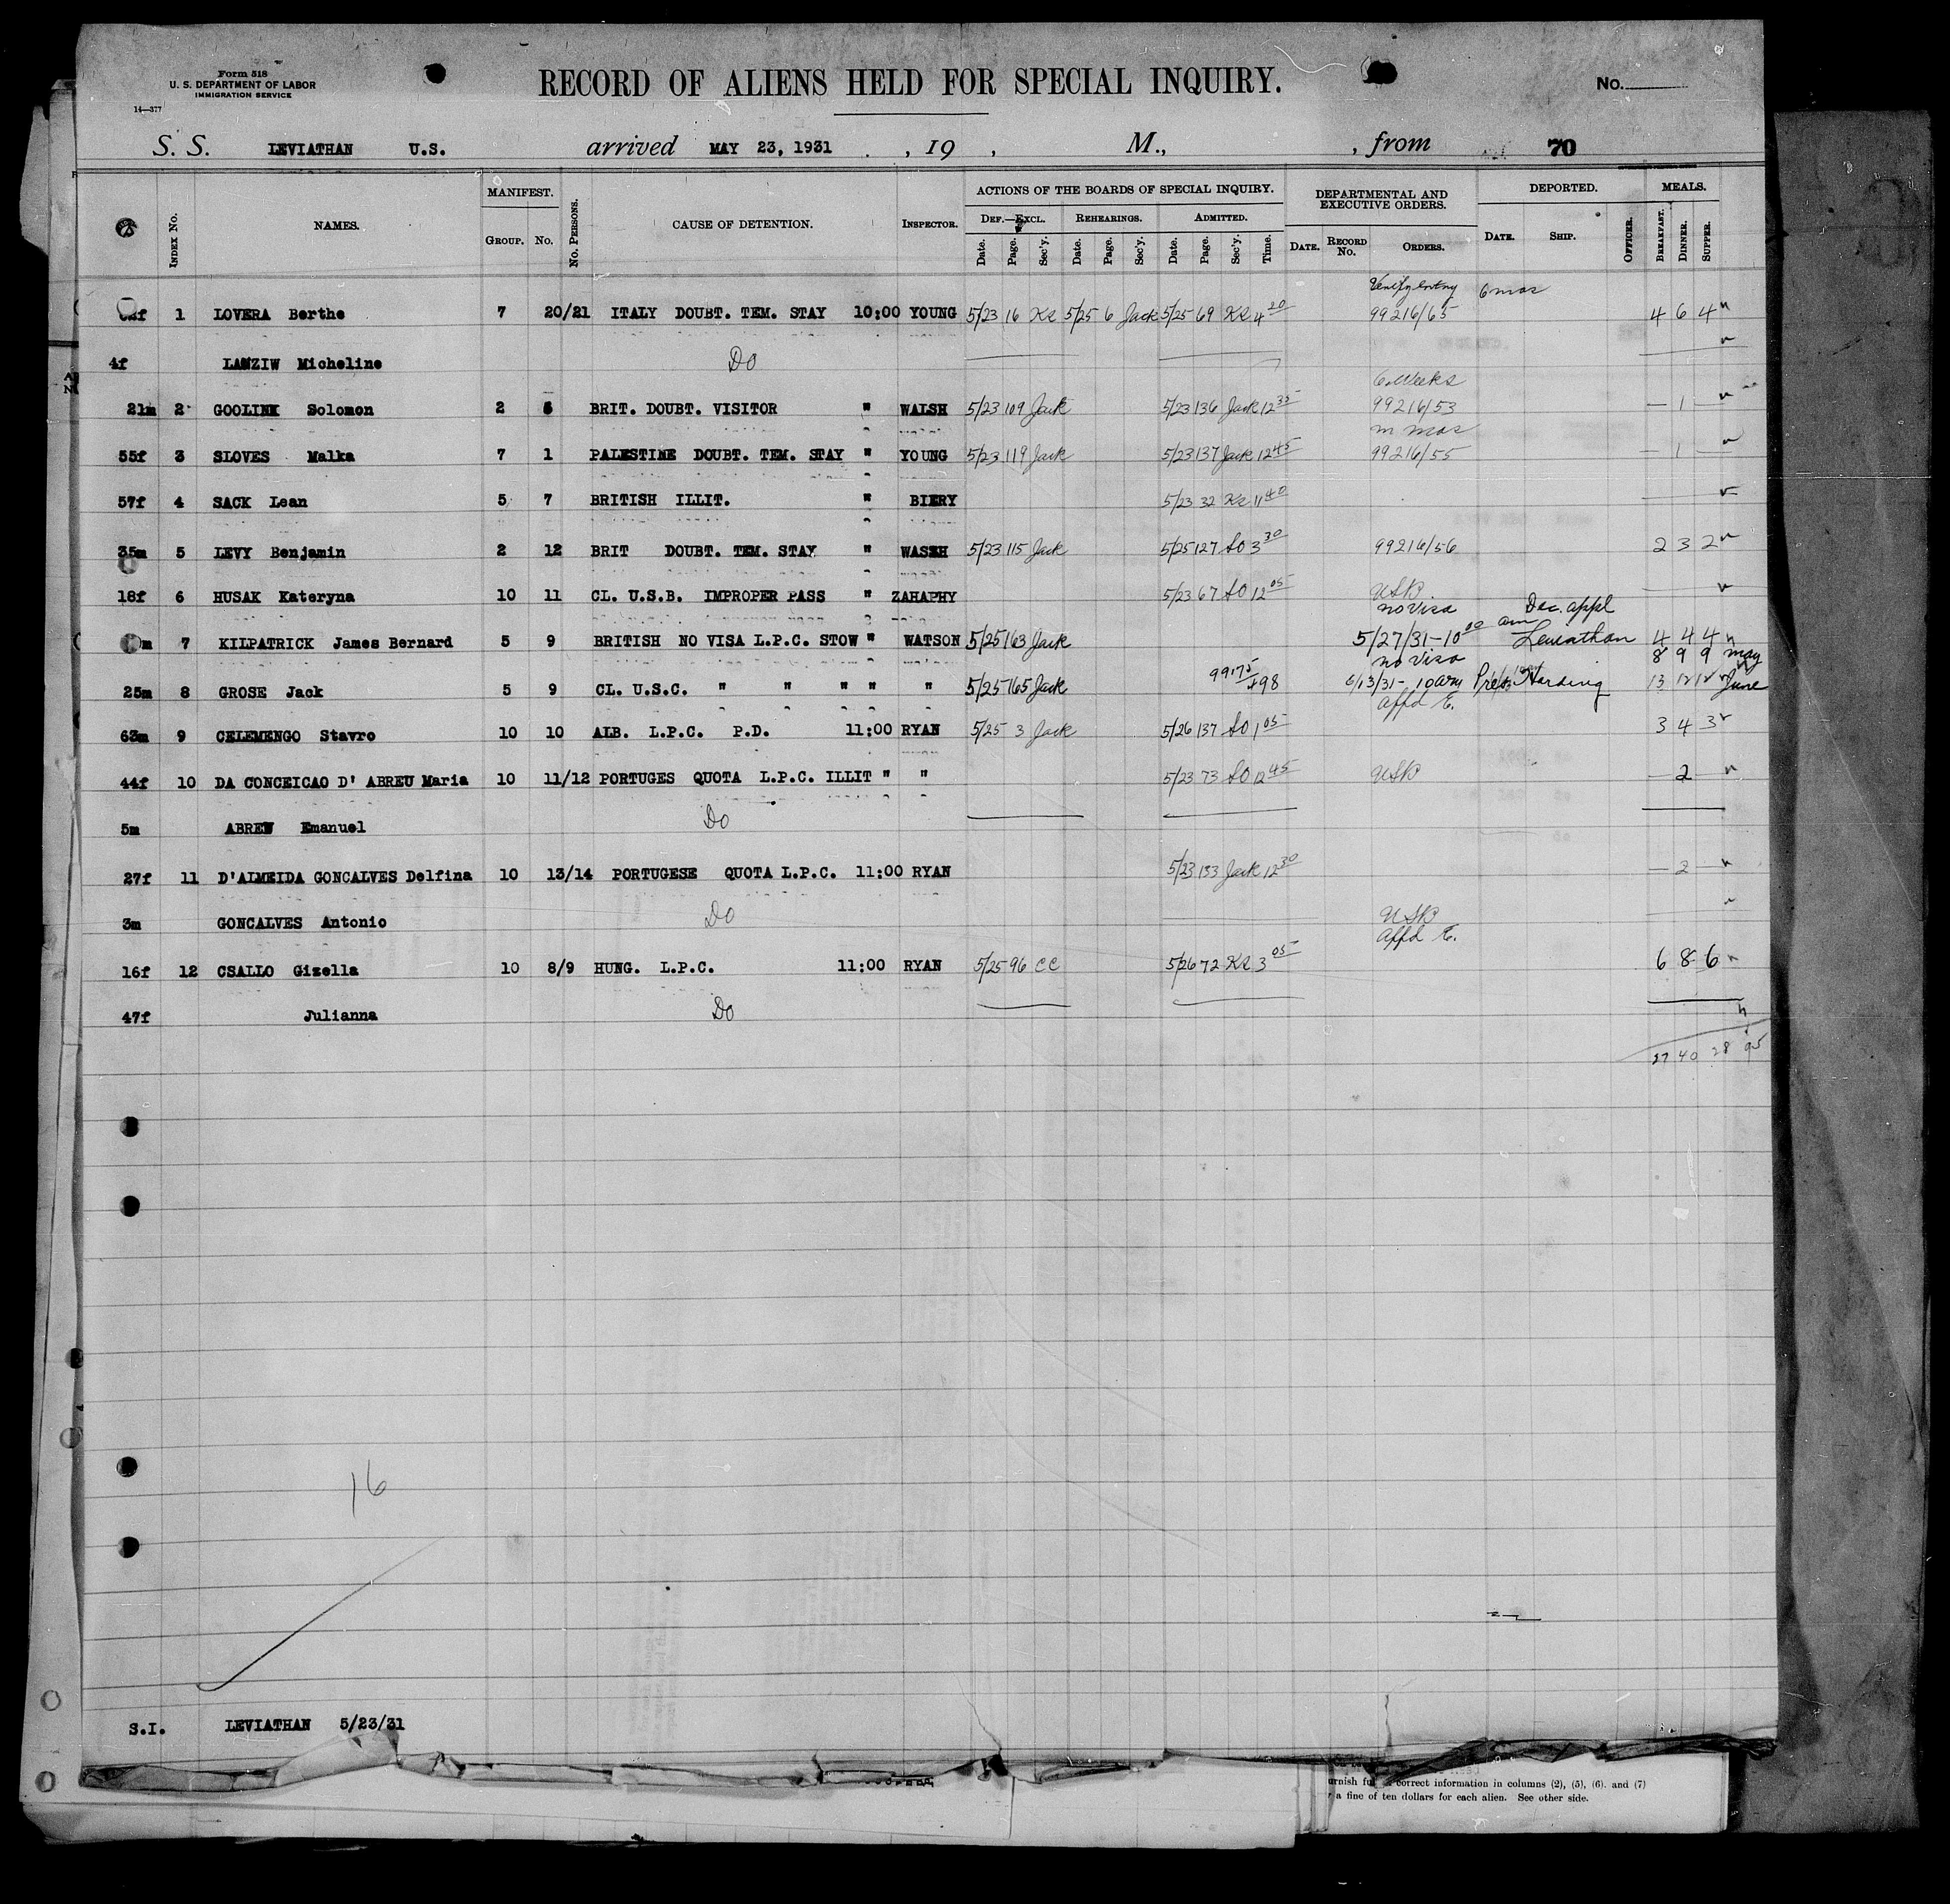 Form 518
U. S. DEPARTMENT OF LABOR
IMMIGRATION SERVICE
14—377
RECORD OF ALIENS HELD FOR SPECIAL INQUIRY.
No.
S. S. LEVIATHAN U.S. arrived MAY 23, 1931 , 19 , M., , from 70
INDEX No. NAMES. MANIFEST. GROUP. No. No. PERSONS. CAUSE OF DETENTION. INSPECTOR. ACTIONS OF THE BOARDS OF SPECIAL INQUIRY. DEF.—EXCL. Date. Page. Sec'y. REHEARINGS. Date. Page. Sec'y. ADMITTED. Date. Page. Sec'y. Time. DEPARTMENTAL AND EXECUTIVE ORDERS. DATE. RECORD No. ORDERS. DEPORTED. DATE. SHIP. OFFICER. MEALS. BREAKFAST. DINNER. SUPPER.
6 mos
1 LOVERA Berthe 7 20/21 ITALY DOUBT. TEM. STAY 10:00 YOUNG 5/23 16 Ks 5/25 6 Jack 5/25 69 Ks 4 20 99216/65 4 6 4
4f LANZIW Micheline Do
6 weeks
21m 2 GOOLINK Solomon 2 BRIT. DOUBT. VISITOR " WALSH 5/23 109 Jack 5/23 136 Jack 12 35 99216/53 — 1 —
mos
55f 3 SLOVES Malka 7 1 PALESTINE DOUBT. TEM. STAY " YOUNG 5/23 119 Jack 5/23 137 Jack 12 45 99216/55 — 1 —
57f 4 SACK Lean 5 7 BRITISH ILLIT. " BIERY 5/23 32 Ks 11 40
35m 5 LEVY Benjamin 2 12 BRIT DOUBT. TEM. STAY " 5/23 115 Jack 5/25 127 SO 3 30 99216/56 2 3 2
18f 6 HUSAK Kateryna 10 11 CL. U.S.B. IMPROPER PASS " ZAHAPHY 5/23 67 SO 12 05 USB
no visa Dec. appl
m 7 KILPATRICK James Bernard 5 9 BRITISH NO VISA L.P.C. STOW " WATSON 5/25 163 Jack 5/27/31-10 00 am Leviathan 4 4 4
no visa 8 9 9 May
25m 8 GROSE Jack 5 9 CL. U.S.C. " " " " " 5/25 165 Jack 99175/498 6/13/31- 10 am Pres Harding 13 12 12 June
Affd E.
63m 9 CELEMENGO Stavro 10 10 ALB. L.P.C. P.D. 11:00 RYAN 5/25 3 Jack 5/26 137 SO 1 05 3 4 3
44f 10 DA CONCEICAO D' ABREU Maria 10 11/12 PORTUGES QUOTA L.P.C. ILLIT " " 5/23 73 SO 12 45 USB — 2 —
5m ABREU Emanuel Do
27f 11 D'ALMEIDA GONCALVES Delfina 10 13/14 PORTUGESE QUOTA L.P.C. 11:00 RYAN 5/23 133 Jack 12 30 — 2 —
3m GONCALVES Antonio Do USB
Affd E.
16f 12 CSALLO Gizella 10 8/9 HUNG. L.P.C. 11:00 RYAN 5/25 96 CC 5/26 72 Ks 3 05 6 8 6
47f Julianna Do
27 40 28 95
16
S.I. LEVIATHAN 5/23/31
correct information in columns (2), (5), (6). and (7)
a fine of ten dollars for each alien. See other side.